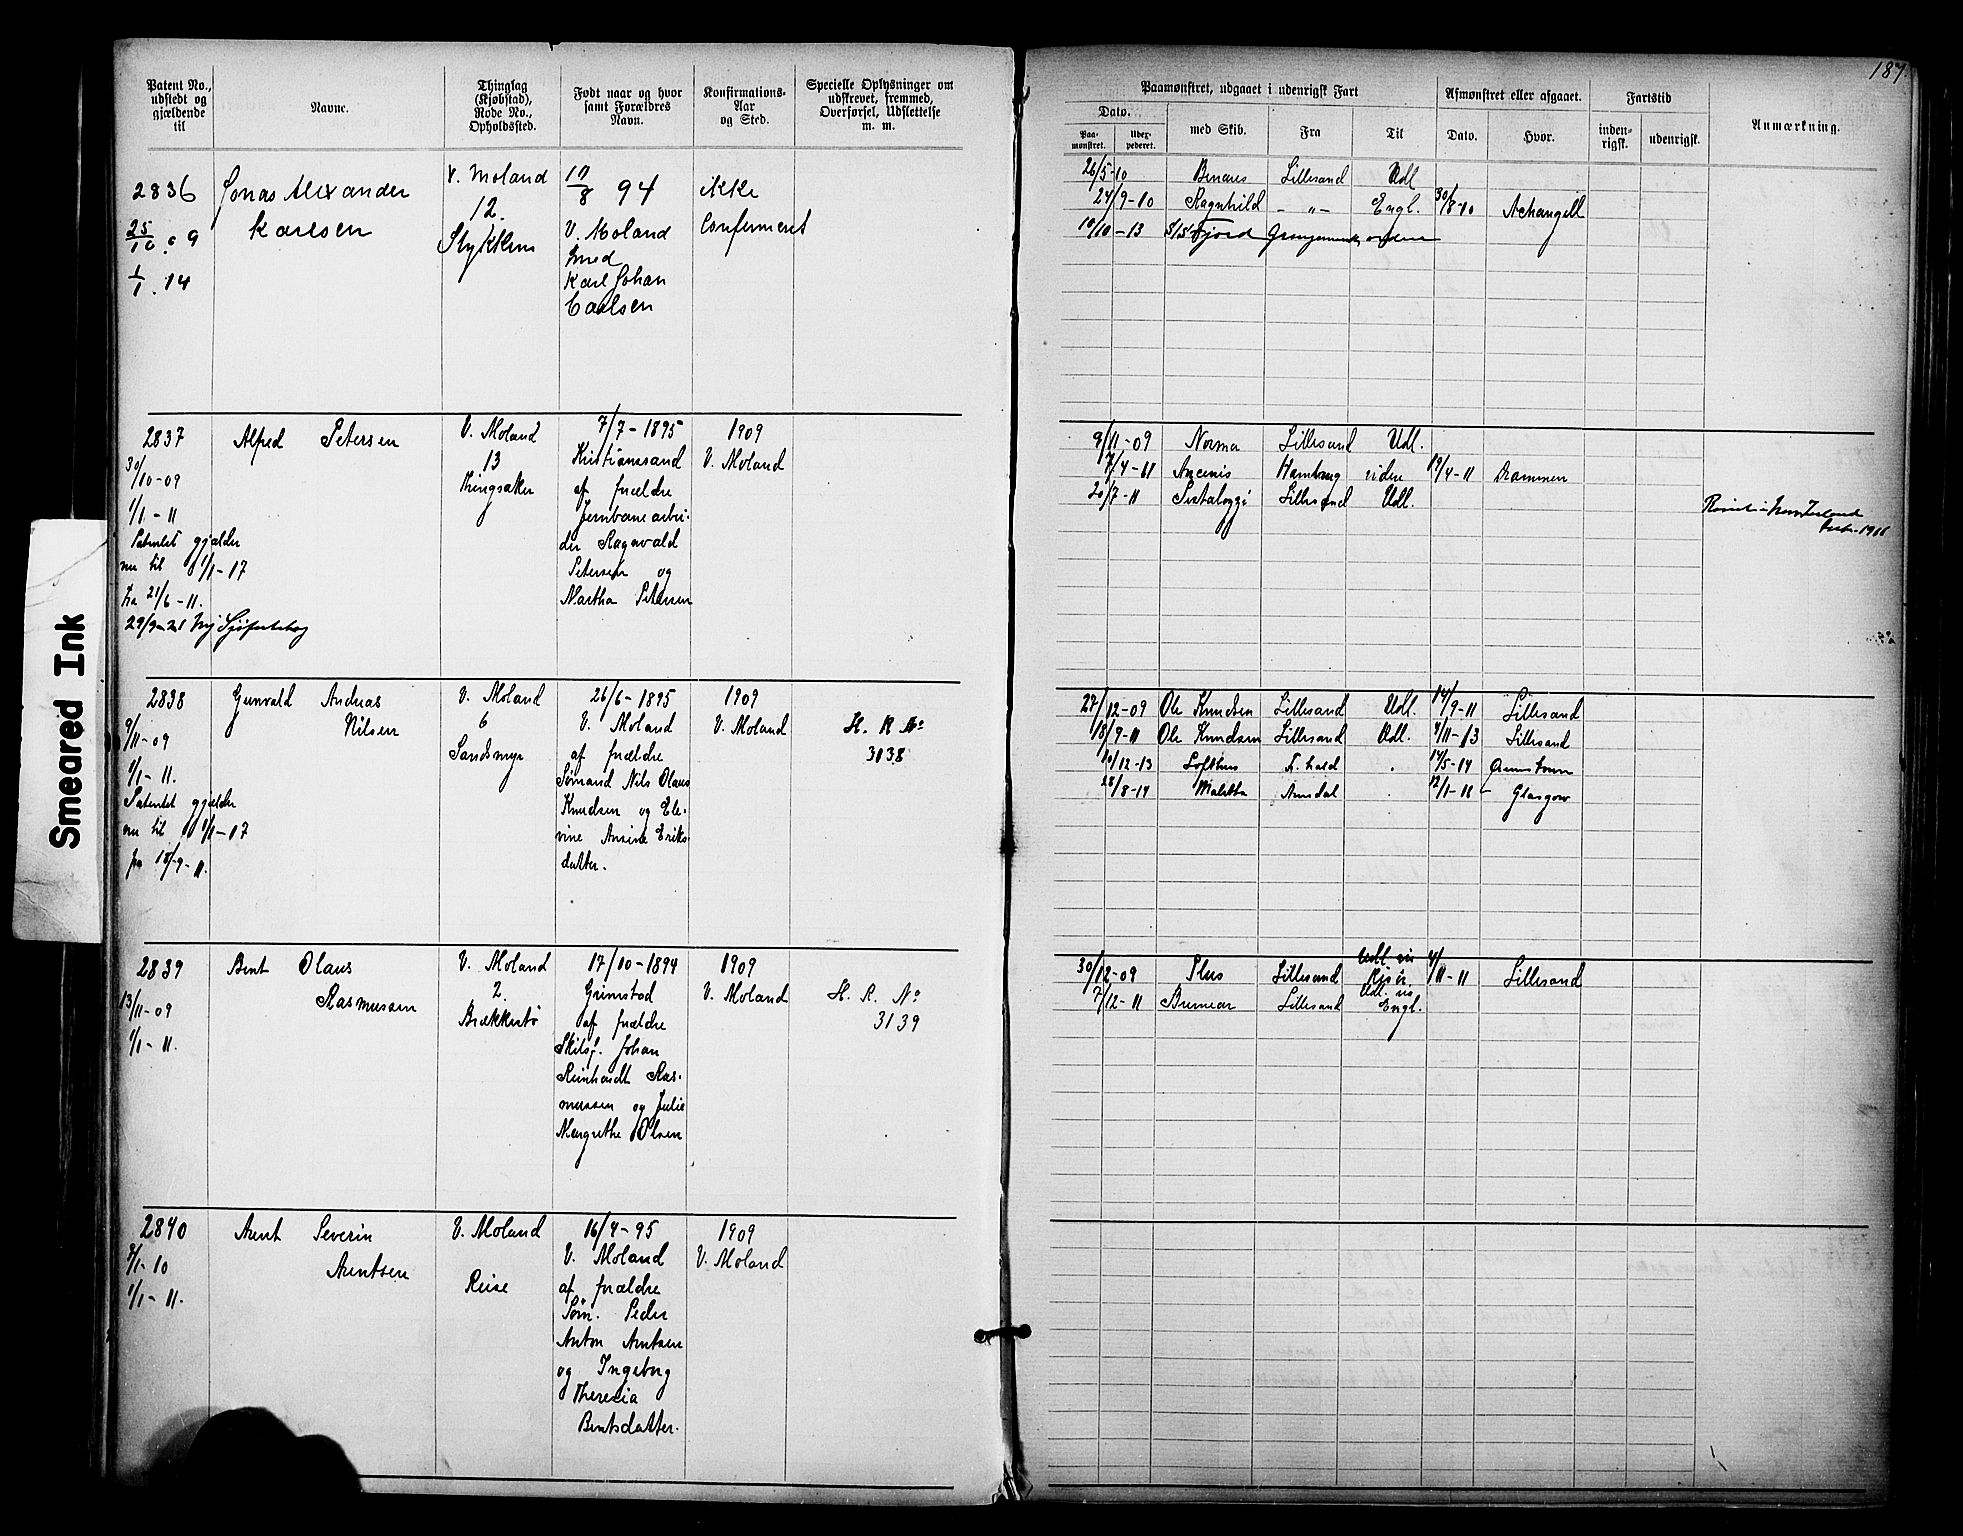 187.
Smeared Ink
Patent No., udstedt og gjældende til
Navne.
Thinglag (Kjøbstad), Rode No., Opholdssted.
Født naar og hvor samt Forældres Navn.
Konfirmations- Aar og Sted.
Specielle Oplysninger om udskrevet, fremmed, Overførsel, Udslettelse m. m.
Paamønstret, udgaaet i udenrigsk Fart
Dato.
Paa- mønstret.
med Skib.
Fra
Til
Afmønstret eller afgaaet.
Dato.
Hvor.
Fartstid
inden- rigsk.
udenrigsk.
Anmærkning.
2836
25/10 09
1/1. 14
Jonas Alexander
Karlsen
V. Moland
12.
94
V. Moland
Karl Johan
Carlsen
ikke
Confirmeret
26/5-10 Benares Lillesand Udl
24/9-10 Ragnhild - " - Engl. 30/8-10
10/10-13 S/S Fjord
2837
30/10-09
1/1-11
Patentet gjælder
nu til 1/1-17
fra 21/6-11.
Alfred Petersen
V. Moland
13
Ringsaker
7/7-1895
Kristianssand
af forældre
Jernbanearbei-
der Ragnvald
Petersen og
Martha Petersen
1909
V. Moland
9/11-09 Norma Lillesand Udl.
7/4-11 Hamburg videre 19/4-11 Drammen
20/7-11 Lillesand Udl.
2838
9/11-09
1/1-11.
Patentet gjælder
nu til 1/1-17
fra 18/9-11.
Gunvald Andreas
Nilsen
V. Moland
6
Sandsmyr
26/6-1895
V. Moland
af forældre
Sømand Nils Olaus
Knudsen og Ele-
vine Ansine Eriks-
datter.
1909
V. Moland
H. R. No
3138
27/12-09 Ole Knudsen Lillesand Udl. 14/9-11 Lillesand
18/9-11 Ole Knudsen Lillesand Udl. 4/11-13 Lillesand
10/12-13 Lofthus F.hald 14/5-14
28/8-14 Arendal 12/1-16 Glasgow
2839
13/11-09
1/1-11.
Bent Olaus
Rasmussen
V. Moland
2.
Brækkestø
17/10-1894
Grimstad
af forældre
Skibsf. Johan
Reinhardt Ras-
mussen og Julie
Margrethe Olsen
1909
V. Moland
H. R. No
3139
30/12-09 Plus Lillesand Udl. via Risør. 4/11-11 Lillesand
7/12-11 Lillesand Udl. via Engl.
2840
3/1-10
1/1-11.
Arent Severin
Arentsen
V. Moland
Reise
16/4-95
V. Moland
af forældre
Søm. Peder
Anton Arntsen
og Ingeborg
Theresia
Berntsdatter.
1909
V. Moland